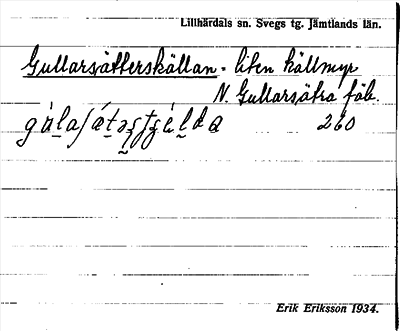 Lillhärdals sn. Svegs tg. Jämtlands län.
Gullarsätterskällan - liten källmyr
N. Gullarsätra fäb.
260
Erik Eriksson 1934.